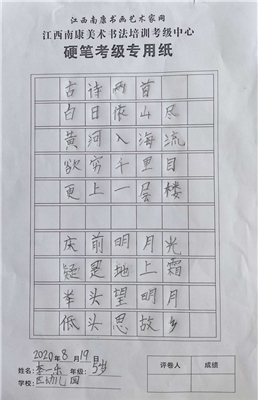 江西南康书画艺术家网
江西南康美术书法培训考级中心
硬笔考级专用纸
古诗两首
白日依山尽
黄河入海流
欲穷千里目
更上一层楼
床前明月光
疑是地上霜
举头望明月
低头思故乡
2020年8月19日
姓名:李一乐 年级:5岁
学校: 幼儿园
评卷人 成绩